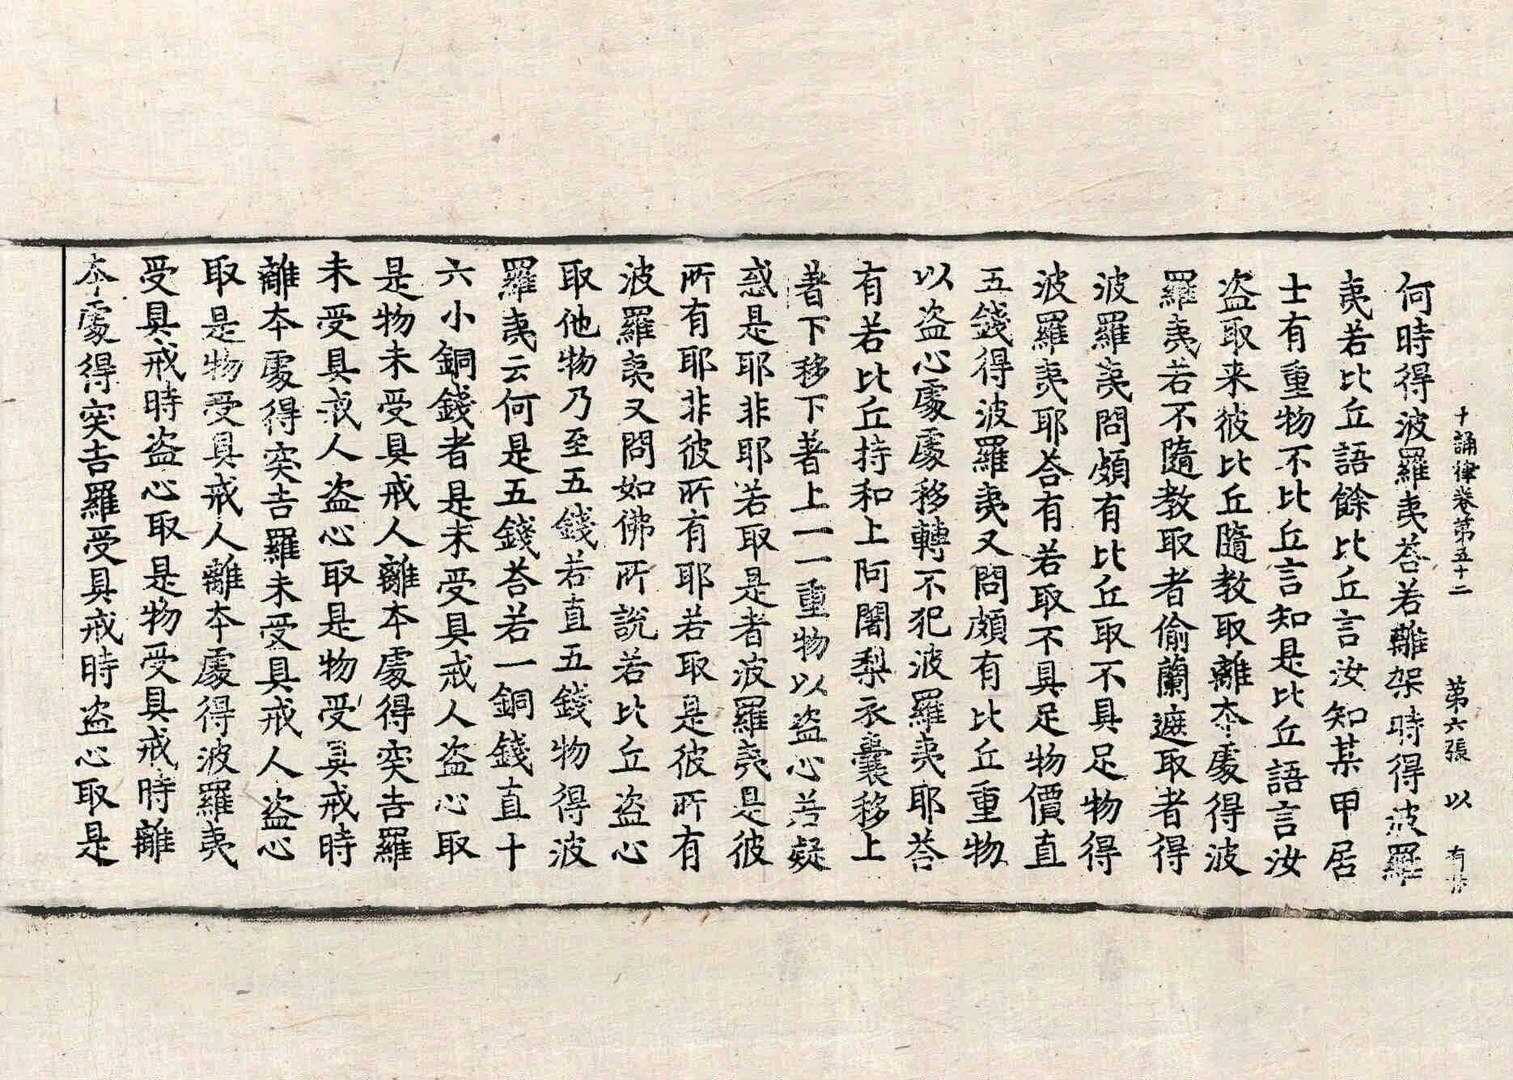 十誦律卷第五十二　第六張　以
何時得波羅夷荅若離架時得波羅
夷若比丘語餘比丘言汝知某甲居
士有重物不比丘言知是比丘語言汝
盜取来彼比丘隨教取離夲處得波
羅夷若不隨教取者偷蘭遮取者得
波羅夷問頗有比丘取不具足物得
波羅夷耶荅有若取不具足物價直
五錢得波羅夷又問頗有比丘重物
以盜心處處移轉不犯波羅夷耶荅
有若比丘持和上阿闍梨衣囊移上
著下移下著上一一重物以盜心若疑
惑是耶非耶若取是者波羅夷是彼
所有耶非彼所有耶若取是彼所有
波羅夷又問如佛所說若比丘盜心
取他物乃至五錢若直五錢物得波
羅夷云何是五錢荅若一銅錢直十
六小銅錢者是未受具戒人盜心取
是物未受具戒人離夲處得突吉羅
未受具戒人盜心取是物受具戒時
離夲處得突吉羅未受具戒人盜心
取是物受具戒人離夲處得波羅夷
受具戒時盜心取是物受具戒時離
夲處得突吉羅受具戒時盜心取是